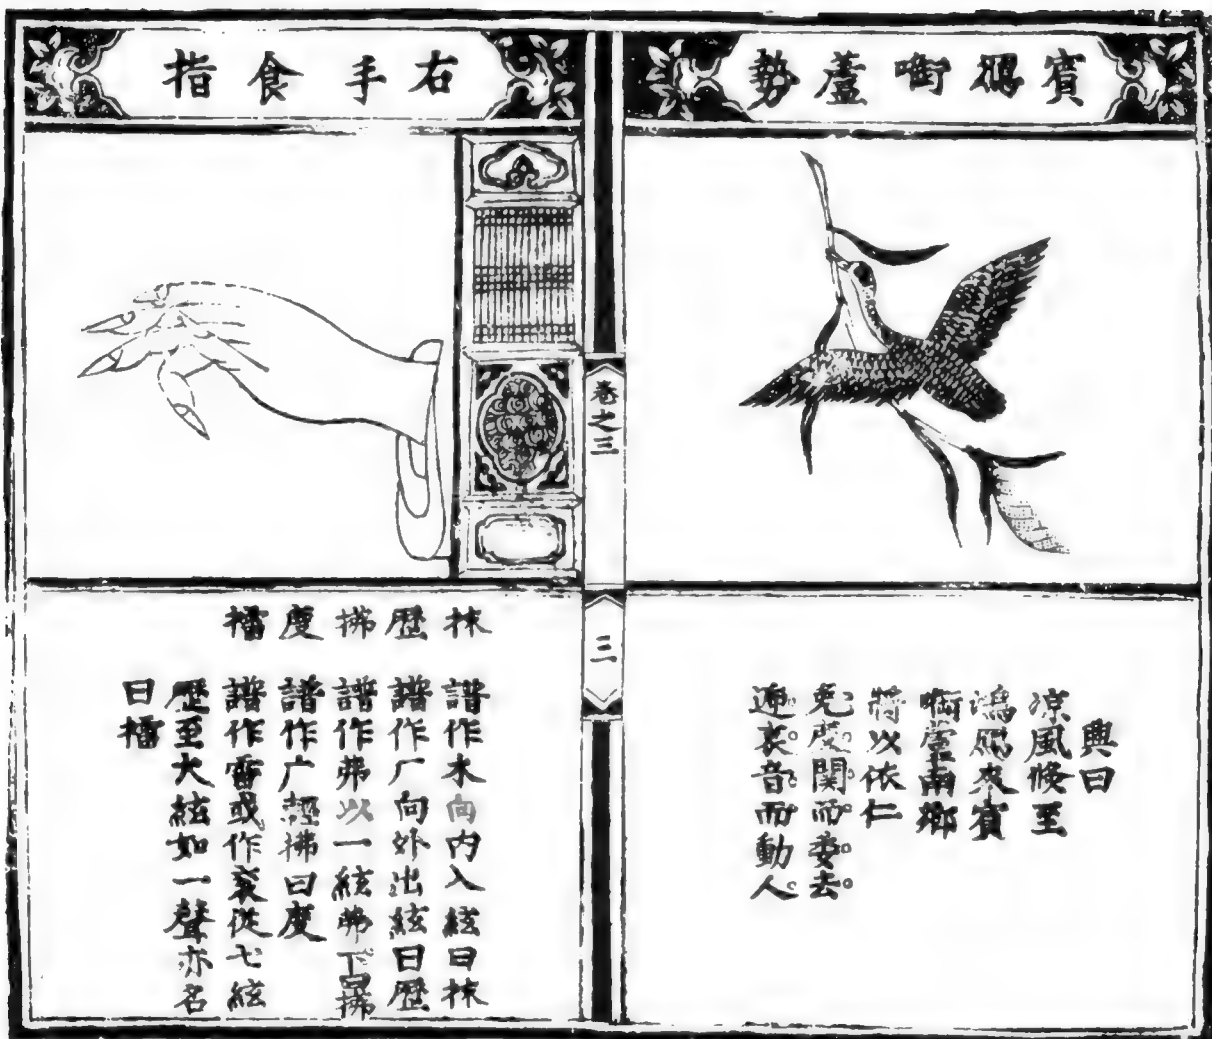 賓鴈啣蘆勢
興曰
凉風倏至
鴻鴈來賓
啣蘆南鄉
將以依仁
度關而委去。
哀音而動人。
卷之三
三
右手食指
抹 譜作木向内入絃曰抹
歷 譜作厂向外出絃曰歷
拂 譜作弗以一絃弗下曰拂
度 譜作广輕拂曰度
擂 譜作雷或作衮從七絃
歷至大絃如一聲亦名
曰擂